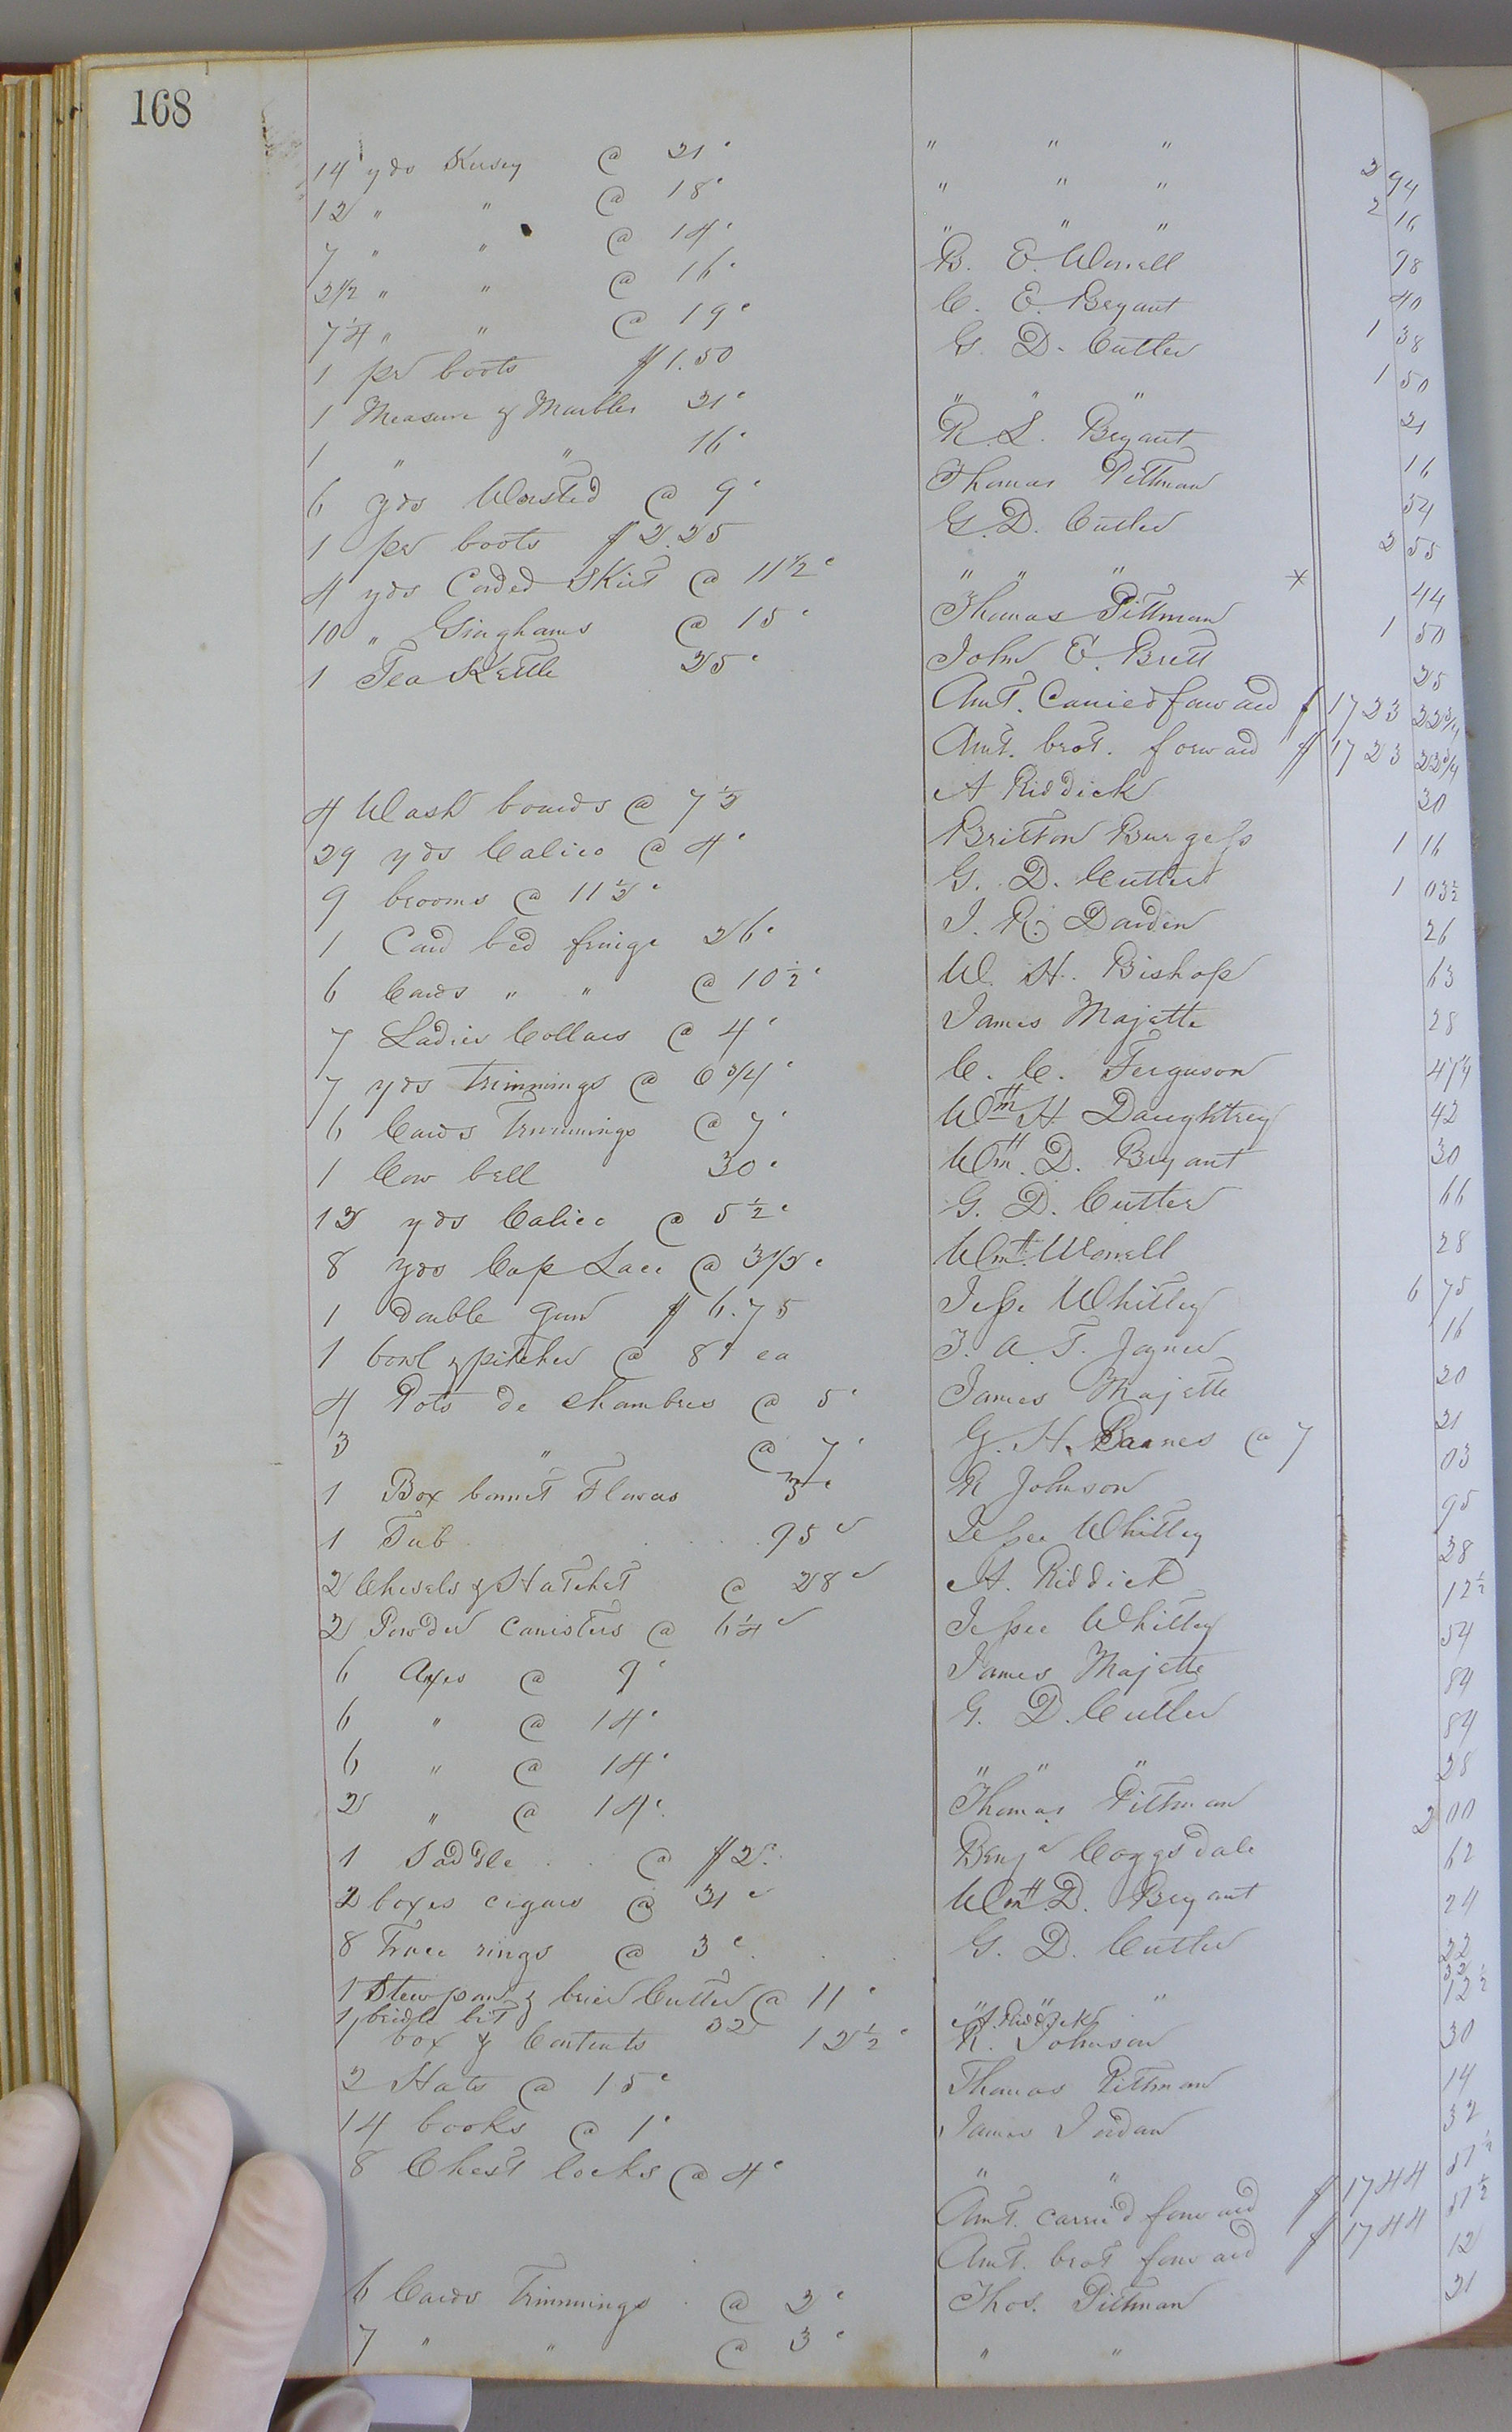 168
14 yds Kersey @ 21c " " " 2 94
12 " " @ 18c " " " 2 16
7 " " @ 14c " " " 98
2 1/2 " " @ 16c B. E. Worrell 40
7 1/4 " " @ 19c C. E. Bryant 1 38
1 pr boots $1.50 G. D. Cutler 1 50
1 Measure of Marbles 21c " " " 21
1 " " 16c R. L. Bryant 16
6 yds Worsted @ 9c Thomas Pittman 54
1 pr boots $2.25 G. D. Cutler 2 55
4 yds Corded Skirt @ 11 1/2c " " " * 44
10 " Ginghams @ 15c Thomas Pittman 1 50
1 Tea Kettle 25c John E. Brett 25
Amt. Carried forward $ 1723 22 3/4
Amt. brot. forward $ 1723 22 3/4
4 Wash boards @ 7 1/2 A Riddick 30
29 yds Calico @ 4c Britton Burgess 1 16
9 brooms @ 11 1/2c G. D. Cutler 1 03 1/2
1 Card bed fringe 26c J. R. Darden 26
6 Cards " " @ 10 1/2c W. H. Bishop 63
7 Ladies Collars @ 4c James Majette 28
7 yds trimmings @ 6 3/4c C. C. Ferguson 47 1/4
6 Cards Trimmings @ 7c Wm H Daughtrey 42
1 Cow bell 30c Wm. D. Bryant 30
12 yds Calico @ 5 1/2c G. D. Cutler 66
8 yds Cap Lace @ 3 1/2c Wm. Worrell 28
1 double gun $6.75 Jesse Whitley 6 75
1 bowl & pitcher @ 8c ea J. A. T. Joyner 16
4 Pots de chambres @ 5c James Majette 20
3 " @ 7c G. H. Barnes @ 7 21
1 Box bonnet Flowers 3c R Johnson 03
1 Tub 95c Jesse Whitley 95
2 Chisels & Hatchet @ 28c A. Riddick 28
2 Powder Canisters @ 6 1/4c Jesse Whitley 12 1/2
6 Axes @ 9c James Majette 54
6 " @ 14c G. D. Cutler 84
6 " @ 14c " " " 84
2 " @ 14c Thomas Pittman 28
1 Saddle @ $2. Benja Coggsdale 2 00
2 boxes cigars @ 31c Wm. D. Bryant 62
8 Trace rings @ 3c G. D. Cutler 24
1 Stew pan & brier Cutter @ 11c " " " 22
1 bridle bit 32 A. Riddick 32
1 box & Contents 12 1/2c R. Johnson 12 1/2
2 Hats @ 15c Thomas Pittman 30
14 books @ 1c James Jordan 14
8 Chest locks @ 4c " " 32
Amt. carried forward $ 1744 51 1/2
Amt. brot forward $ 1744 51 1/2
6 Cards Trimmings @ 2c Thos. Pittman 12
7 " " @ 3c " " 21